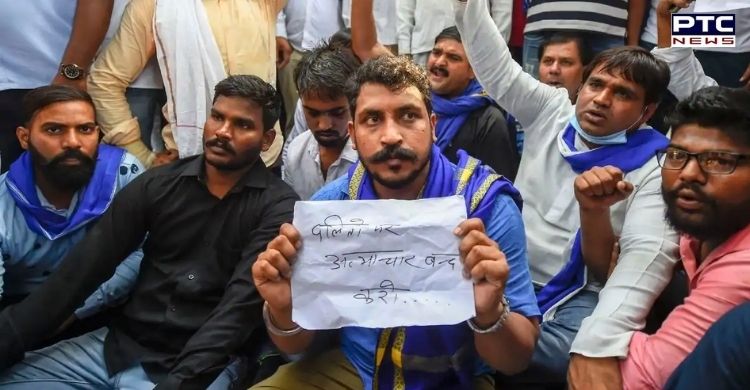 PTC
NEWS
दलितो पर
अत्याचार बन्द
करो.....